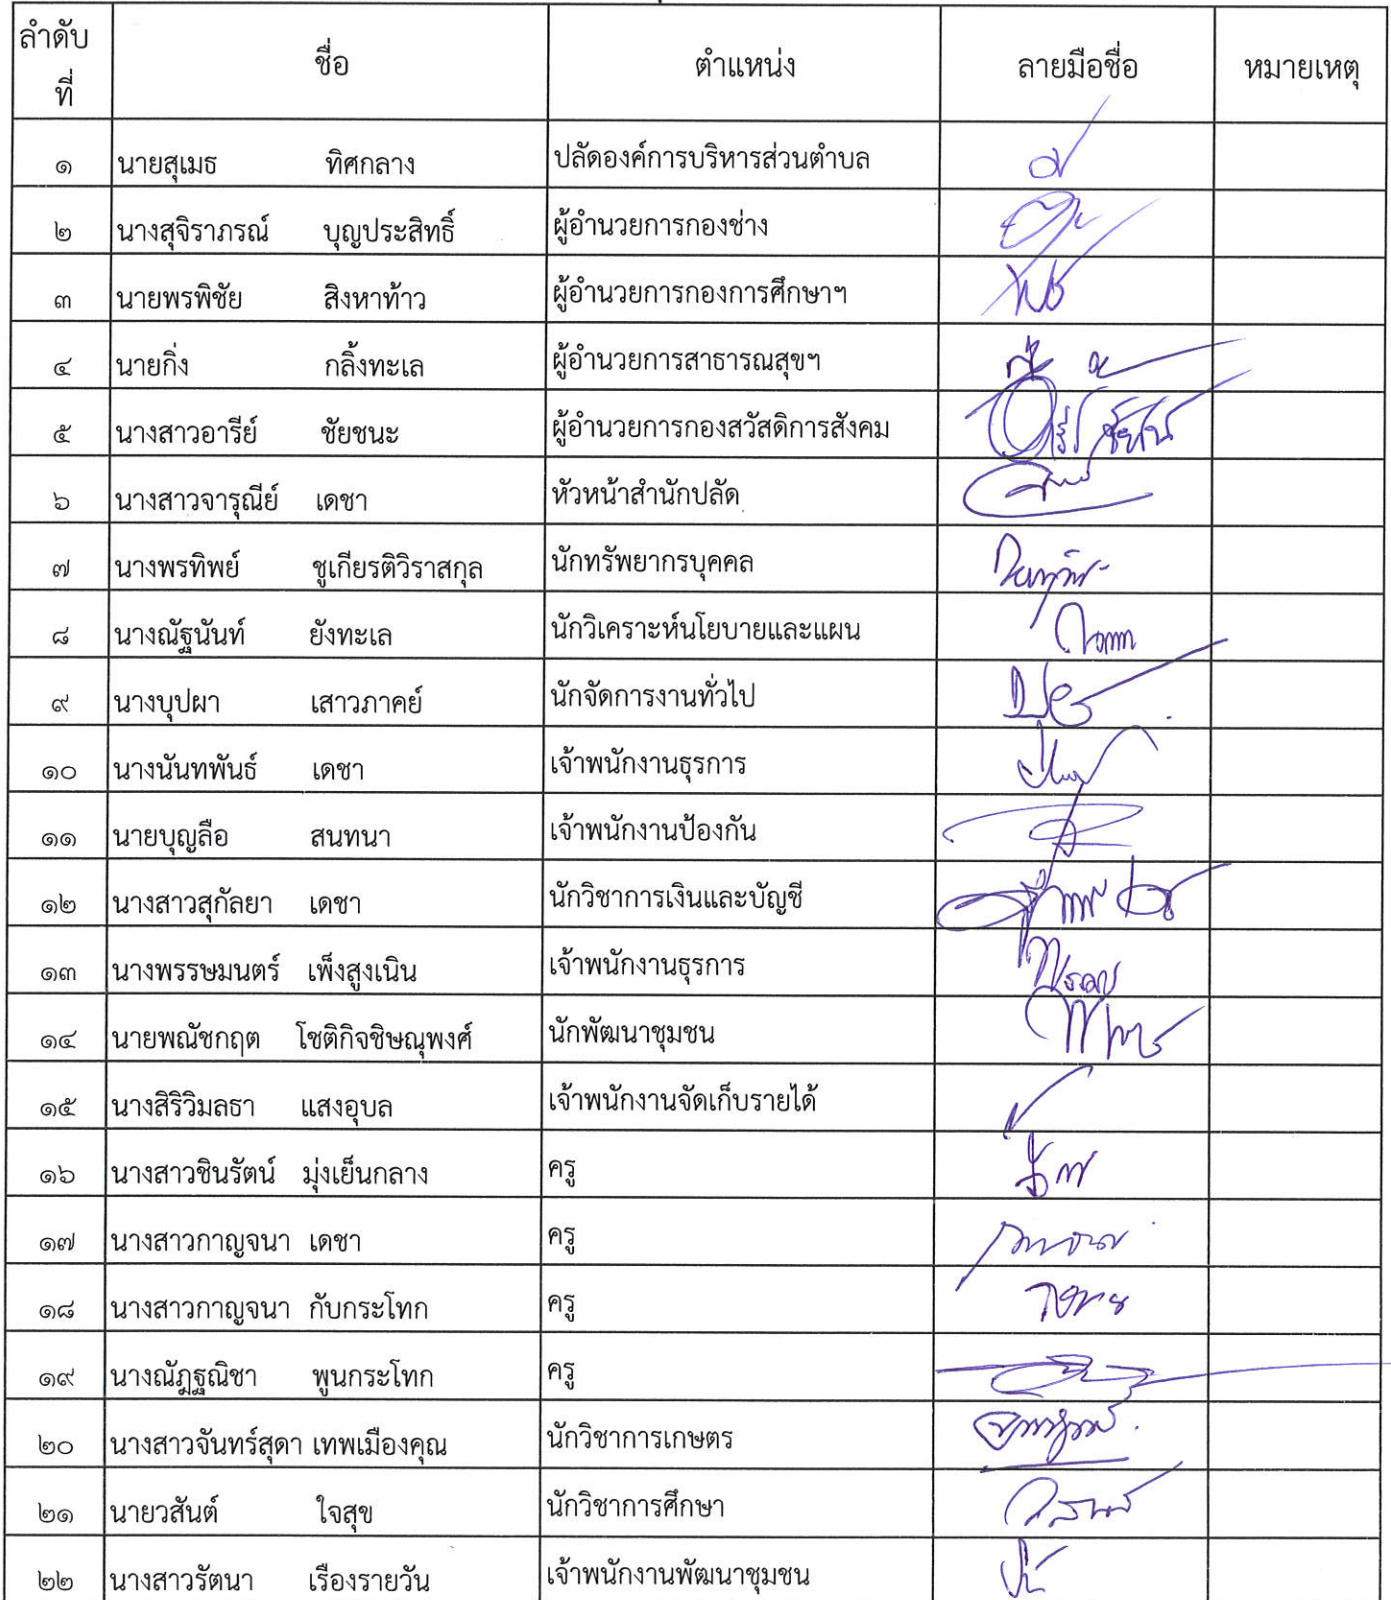 ลำดับที่ ชื่อ ตำแหน่ง ลายมือชื่อ หมายเหตุ
๑ นายสุเมธ ทิศกลาง ปลัดองค์การบริหารส่วนตำบล
๒ นางสุจิราภรณ์ บุญประสิทธิ์ ผู้อำนวยการกองช่าง
๓ นายพรพิชัย สิงหาท้าว ผู้อำนวยการกองการศึกษาฯ
๔ นายกิ่ง กลิ้งทะเล ผู้อำนวยการสาธารณสุขฯ
๕ นางสาวอารีย์ ชัยชนะ ผู้อำนวยการกองสวัสดิการสังคม
๖ นางสาวจารุณีย์ เดชา หัวหน้าสำนักปลัด
๗ นางพรทิพย์ ชูเกียรติวิราสกุล นักทรัพยากรบุคคล
๘ นางณัฐนันท์ ยังทะเล นักวิเคราะห์นโยบายและแผน
๙ นางบุปผา เสาวภาคย์ นักจัดการงานทั่วไป
๑๐ นางนันทพันธ์ เดชา เจ้าพนักงานธุรการ
๑๑ นายบุญลือ สนทนา เจ้าพนักงานป้องกัน
๑๒ นางสาวสุกัลยา เดชา นักวิชาการเงินและบัญชี
๑๓ นางพรรษมนตร์ เพ็งสูงเนิน เจ้าพนักงานธุรการ
๑๔ นายพณัชกฤต โชติกิจชิษณุพงศ์ นักพัฒนาชุมชน
๑๕ นางสิริวิมลธา แสงอุบล เจ้าพนักงานจัดเก็บรายได้
๑๖ นางสาวชินรัตน์ มุ่งเย็นกลาง ครู
๑๗ นางสาวกาญจนา เดชา ครู
๑๘ นางสาวกาญจนา กับกระโทก ครู
๑๙ นางณัฏฐณิชา พูนกระโทก ครู
๒๐ นางสาวจันทร์สุดา เทพเมืองคุณ นักวิชาการเกษตร
๒๑ นายวสันต์ ใจสุข นักวิชาการศึกษา
๒๒ นางสาวรัตนา เรืองรายวัน เจ้าพนักงานพัฒนาชุมชน